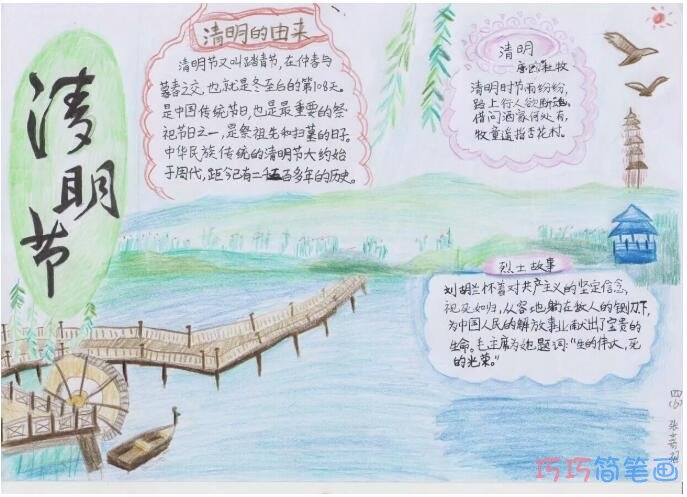 清明节
清明的由来
清明节又叫踏青节,在仲春与
暮春之交,也就是冬至后的第108天。
是中国传统节日,也是最重要的祭
祀节日之一,是祭祖先和扫墓的日子。
中华民族传统的清明节大约始
于周代,距今已有二千五百多年的历史。
清明
唐 杜牧
清明时节雨纷纷,
路上行人欲断魂。
借问酒家何处有,
牧童遥指杏花村。
烈士故事
刘胡兰怀着对共产主义的坚定信念,
视死如归,从容地躺在敌人的铡刀下,
为中国人民的解放事业献出了宝贵的
生命。毛主席为她题词:“生的伟大,死
的光荣。”
巧巧简笔画